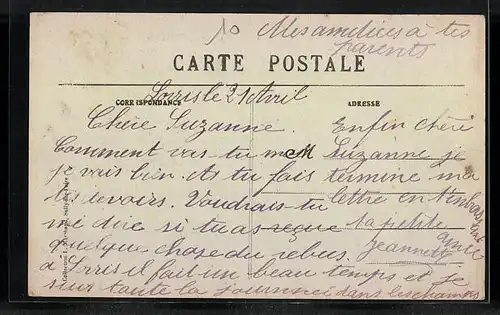 10 Mes amitiés à tes
parents
CARTE POSTALE
Lorris le 21 Avril
CORRESPONDANCE
ADRESSE
Chère Suzanne.
Comment vas-tu
je vais bien. As tu fais
tes devoirs. Voudrais-tu
me dire si tu as reçue
quelque chose du rebus.
à Lorris il fait un beau temps et je
suis toute la journnei dans les champs
Enfin chèri
Suzanne je
termine ma
lettre en t'embrassant
ta petite amie
Jeannette